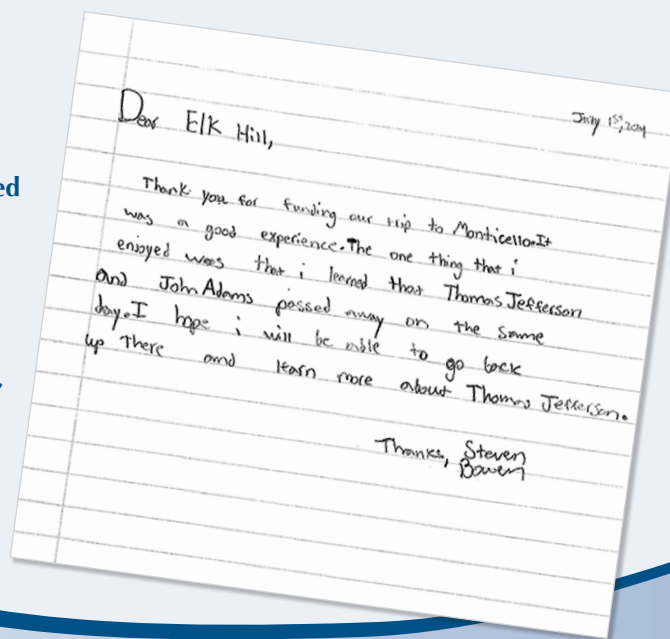 July 1st, 2014
Dear Elk Hill,
Thank you for funding our trip to Monticello. It
was a good experience. The one thing that i
enjoyed was that i learned that Thomas Jefferson
and John Adams passed away on the same
day. I hope i will be able to go back
up there and learn more about Thomas Jefferson.
Thanks, Steven
Bowen
ed